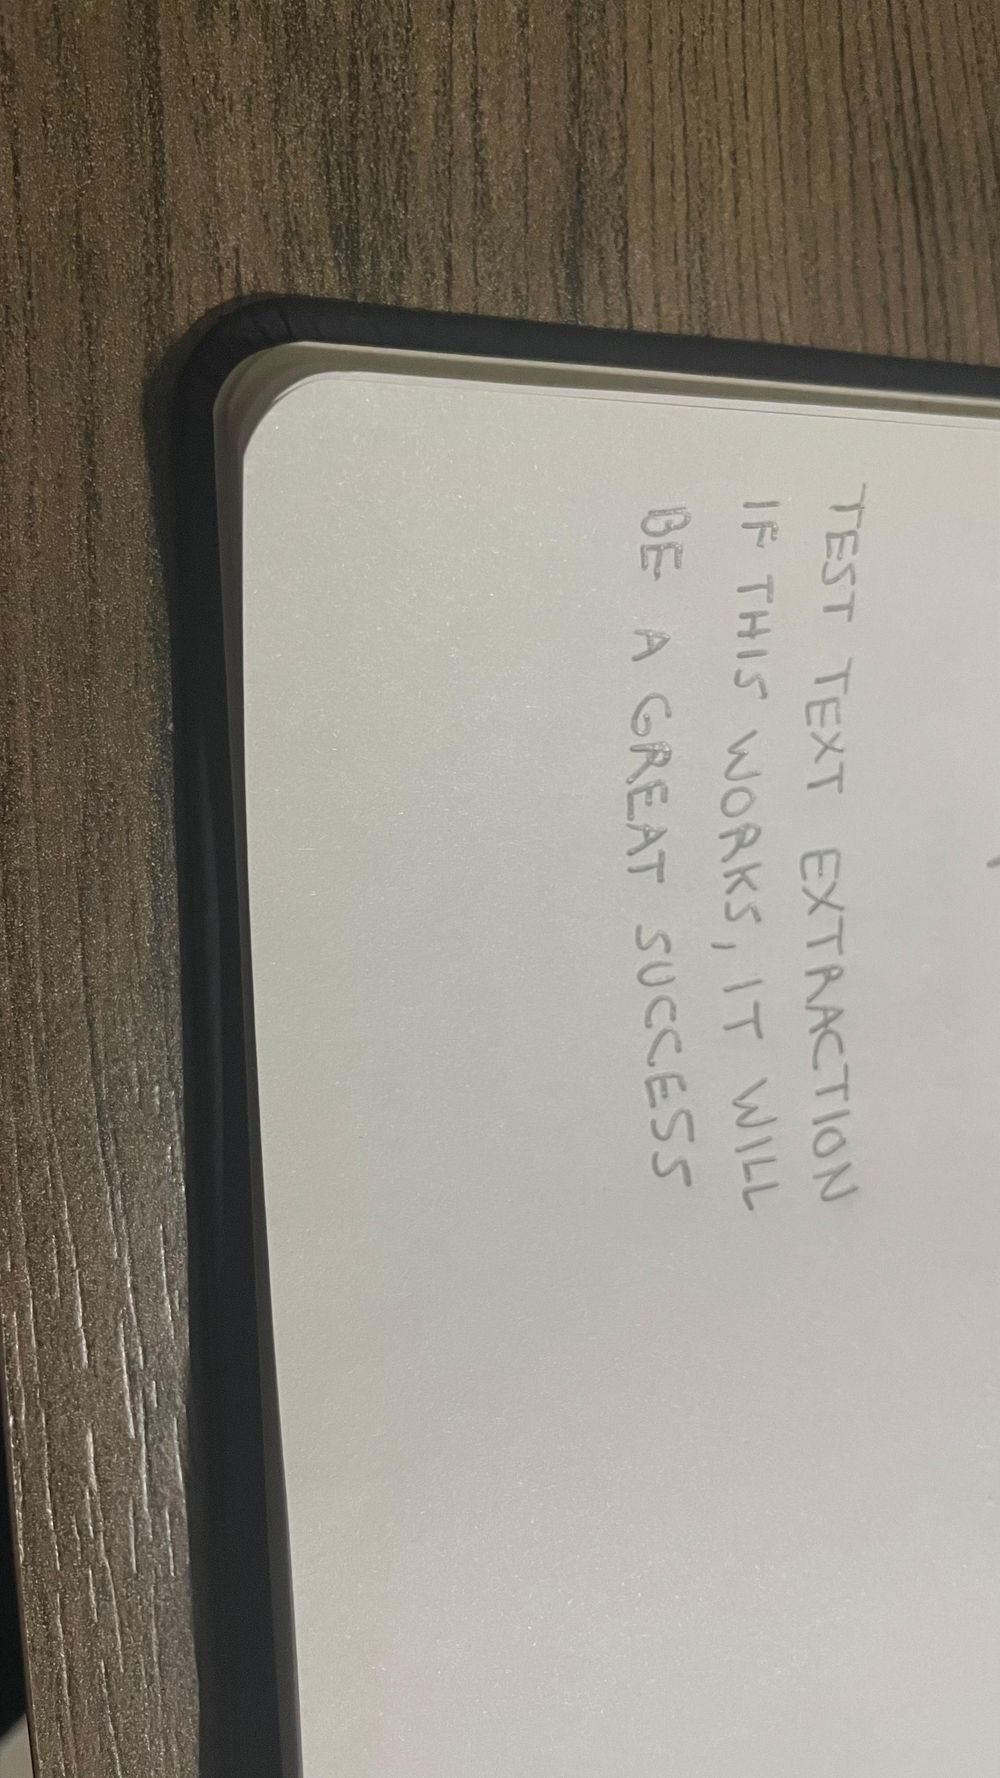 TEST TEXT EXTRACTION
IF THIS WORKS, IT WILL
BE A GREAT SUCCESS